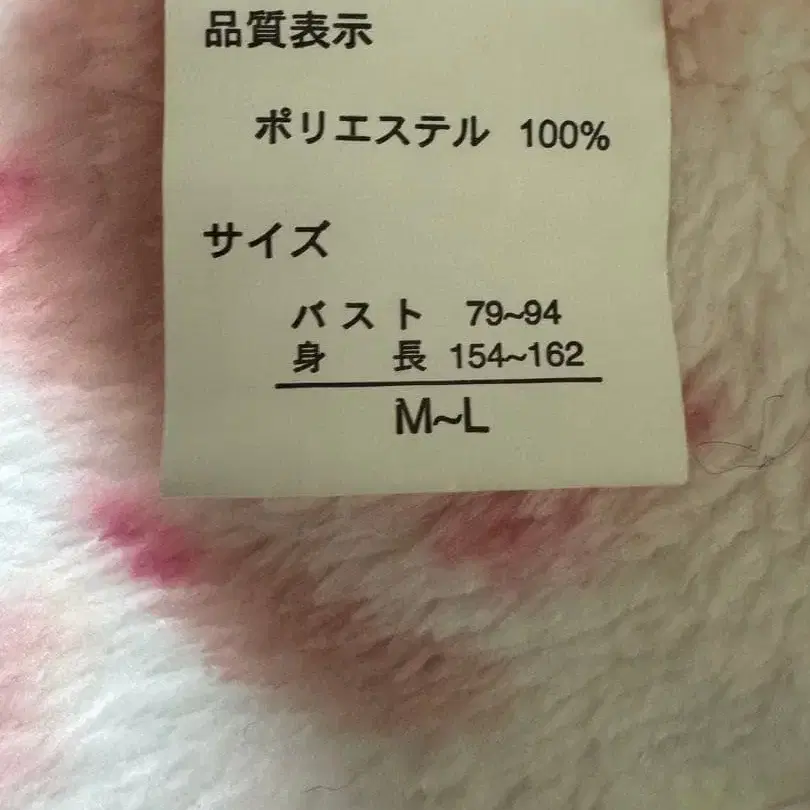 品質表示
ポリエステル 100%
サイズ
バスト 79~94
身長 154~162
M~L